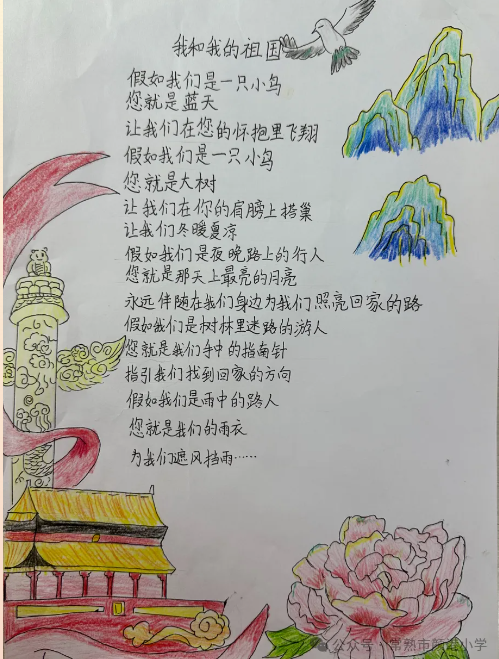 我和我的祖国
假如我们是一只小鸟
您就是蓝天
让我们在您的怀抱里飞翔
假如我们是一只小鸟
您就是大树
让我们在你的肩膀上搭巢
让我们冬暖夏凉
假如我们是夜晚路上的行人
您就是那天上最亮的月亮
永远伴随在我们身边为我们照亮回家的路
假如我们是树林里迷路的游人
您就是我们手中的指南针
指引我们找到回家的方向
假如我们是雨中的路人
您就是我们的雨衣
为我们遮风挡雨……
公众号·常熟市颜港小学